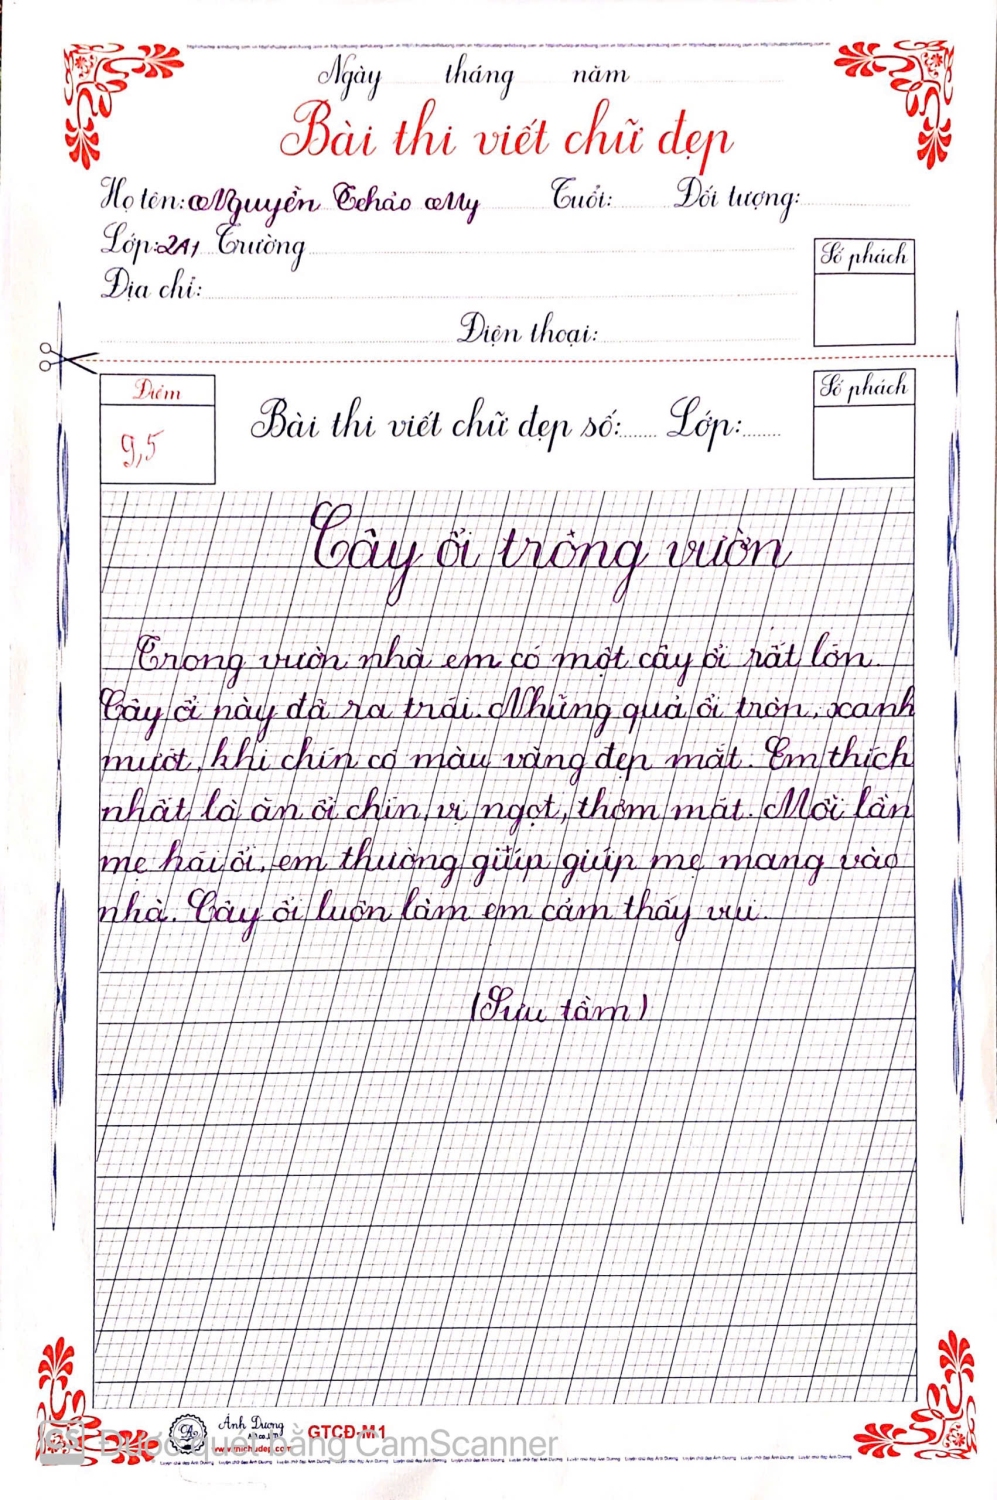 Ngày tháng năm
Bài thi viết chữ đẹp
Họ tên: Nguyễn Thảo My Tuổi: Đối tượng:
Lớp: 2A1 Trường
Số phách
Địa chỉ:
Điện thoại:
Điểm
Số phách
9,5
Bài thi viết chữ đẹp số: Lớp:
Cây ổi trong vườn
Trong vườn nhà em có một cây ổi rất lớn.
Cây ổi này đã ra trái. Những quả ổi tròn, xanh
mướt, khi chín có màu vàng đẹp mắt. Em thích
nhất là ăn ổi chín, vị ngọt, thơm mát. Mỗi lần
mẹ hái ổi, em thường giúp giúp mẹ mang vào
nhà. Cây ổi luôn làm em cảm thấy vui.
(Sưu tầm)
Ánh Dương
GTCĐ-M1
Được quét bằng CamScanner